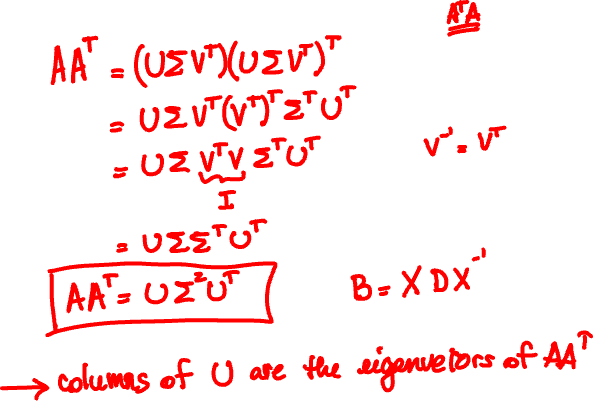 AᵀA
AAᵀ = (UΣVᵀ)(UΣVᵀ)ᵀ
= UΣVᵀ(Vᵀ)ᵀΣᵀUᵀ
= UΣVᵀVΣᵀUᵀ
V⁻¹ = Vᵀ
I
= UΣΣᵀUᵀ
AAᵀ = UΣ²Uᵀ
B = XDX⁻¹
→ columns of U are the eigenvetors of AAᵀ